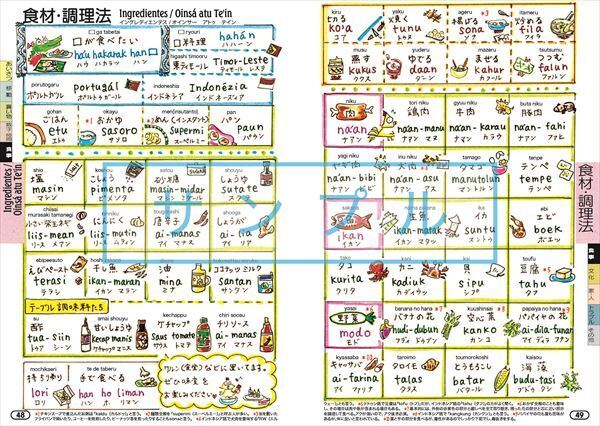 食材・調理法
Ingredientes / Oinsá atu Te'in
イングレディエンテス／オインサー アトゥ テイン
ga tabetai
□が食べたい
hau hakarak han
ハウ ハカラッ ハン
□ ryouri
□料理
hahán
ハハーン
higashi timooru
東ティモール
Timor-Leste
ティモール レステ
porutogaru
ポルトガル
portugál
ポルトゥガール
indoneshia
インドネシア
Indonézia
インドネージア
gohan
ごはん
etu
エトゥ
okayu
おかゆ
sasoro
サソロ
men(insutanto)
めん(インスタント)
supermi
スーペルミー
pan
パン
paun
パウン
shio
塩
masin
マシン
koshou
こしょう
pimenta
ピメンタ
satou
砂糖
masin-midar
マシン ミダール
shouyu
しょうゆ
sutate
スタテ
chiisai murasaki tamanegi
小さい紫玉ネギ
liis-mean
リース メアン
ninniku
にんにく
liis-mutin
リース ムティン
tougarashi
唐辛子
ai-manas
アイ マナス
shouga
しょうが
ai-lia
アイ リア
ebipeesuto
えびペースト
terasi
テラシ
hoshi zakana
干し魚
ikan-maran
イカン マラン
abura
油
mina
ミナ
ココナッツミルク
santan
サンタン
テーブル調味料たち
su
酢
tua-siin
トゥア シーン
amai shouyu
甘いしょうゆ
kecap manis
ケチャップ マニス
kechappu
ケチャップ
saus tomate
サウス トマテ
chiri soosu
チリソース
ai-manas
アイ マナス
mochikaeri
持ち帰り
lori
ロリ
te de taberu
手で食べる
han ho liman
ハン ホ リマン
ワルン(食堂)などに置いてます。
ぜひ味見を
お楽しみください♪
48
kiru
切る
ko'a
コア
yaku
焼く
tunu
トゥヌ
ageru
揚げる
sona
ソナ
itameru
炒める
fila
フィラ
musu
蒸す
kukus
ククス
yuderu
ゆでる
daan
ダーン
mazeru
まぜる
kahur
カフール
tsutsumu
つつむ
falun
ファルン
niku
肉
na'an
ナアン
tori niku
鶏肉
na'an-manu
ナアン マヌ
gyuu niku
牛肉
na'an-karau
ナアン カラウ
buta niku
豚肉
na'an-fahi
ナアン ファヒ
yagi niku
ヤギ肉
na'an-bibi
ナアン ビビ
inu niku
犬肉
na'an-asu
ナアン アス
tamago
タマゴ
manutolun
マヌトルン
tenpe
テンペ
tempe
テンペ
sakana
魚
ikan
イカン
生魚
ikan-matak
イカン マタッ
ika
イカ
suntu
スントゥ
ebi
エビ
boek
ボエッ
tako
タコ
kurita
クリタ
kani
カニ
kadiuk
カディウク
kai
貝
sipu
シプ
toufu
豆腐
tahu
タフ
yasai
野菜
modo
モド
banana no hana
バナナの花
hudi-dubun
フディ ドゥブン
kuushinsai
空心菜
kanko
カンコ
papaiya no hana
パパイヤの花
ai-dila-funan
アイ ディラ フナン
kyassaba
キャッサバ
ai-farina
アイ ファリナ
taroimo
タロイモ
talas
タラス
toumorokoshi
とうもろこし
batar
バタール
kaisou
海藻
budu-tasi
ブドゥ タシ
49
あいさつ
移動
買い物
数字・時間
食事
Ingredientes
Oinsá atu Te'in
食材・調理法
食事
文化
家・人
トラブル
その他
サンプル